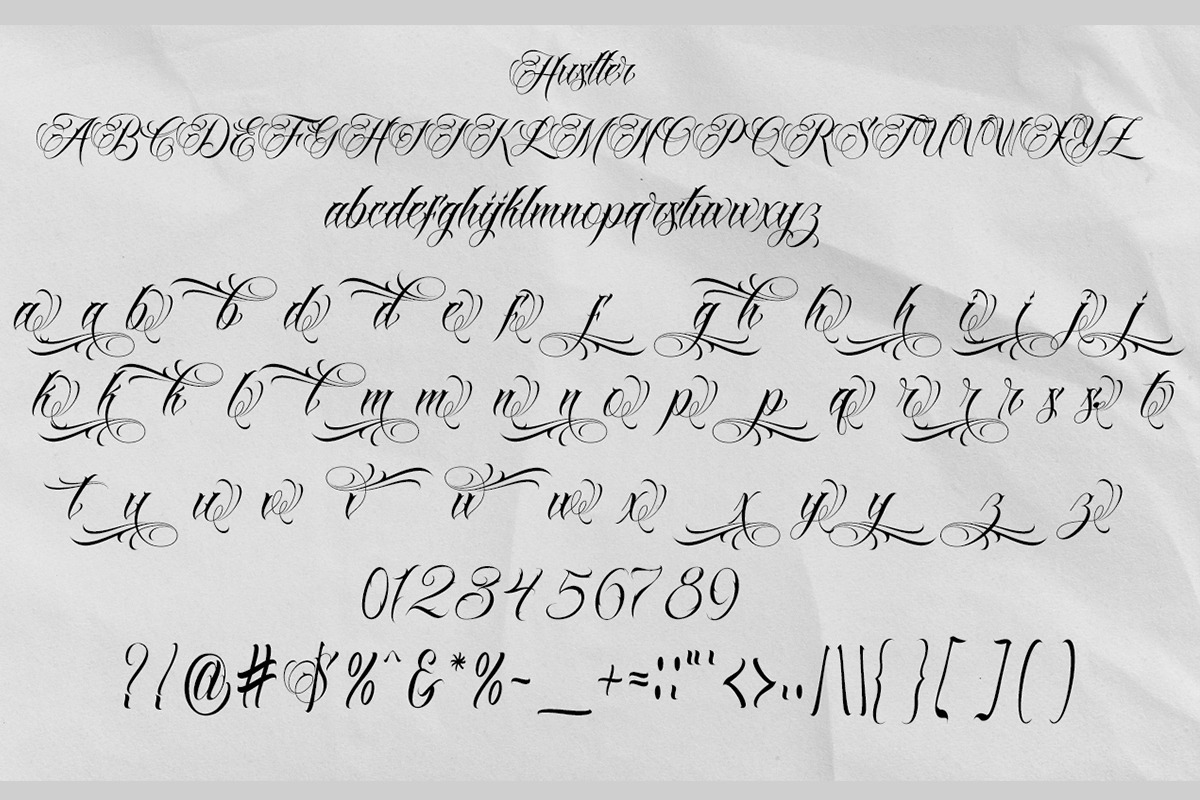 Hustler
ABCDEFGHIJKLMNOPQRSTUVWXYZ
abcdefghijklmnopqrstuvwxyz
a a b b d d e f f g h h h i i j j
k k k l l m m n n o p p q r r r s s t
t u u v v w w x x y y z z
0123456789
? ! @ # $ % ^ & * % ~ _ + = : ; " ' < > . , / \ | { } [ ] ( )